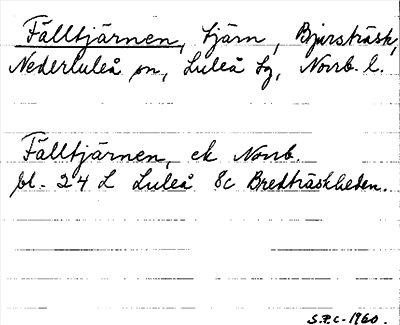 Fälltjärnen, tjärn, Bjursträsk,
Nederluleå sn, Luleå tg, Norrb. l.
Fälltjärnen, ek Norrb.
bl. 24 L Luleå 8c Bredträskheden.
S.P.C-1960.